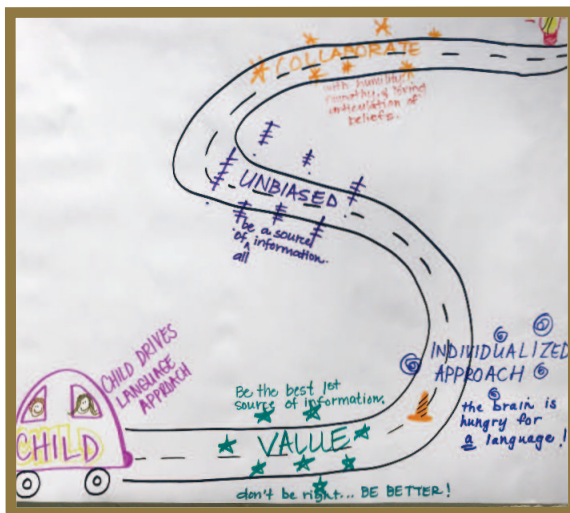 COLLABORATE
with humility,
empathy, & loving
articulation of
beliefs.
UNBIASED
be a source
of ^ information.
all
INDIVIDUALIZED
APPROACH
the brain is
hungry for
a language!
CHILD DRIVES
LANGUAGE
APPROACH
CHILD
Be the best 1st
source of information.
VALUE
don't be right... BE BETTER!